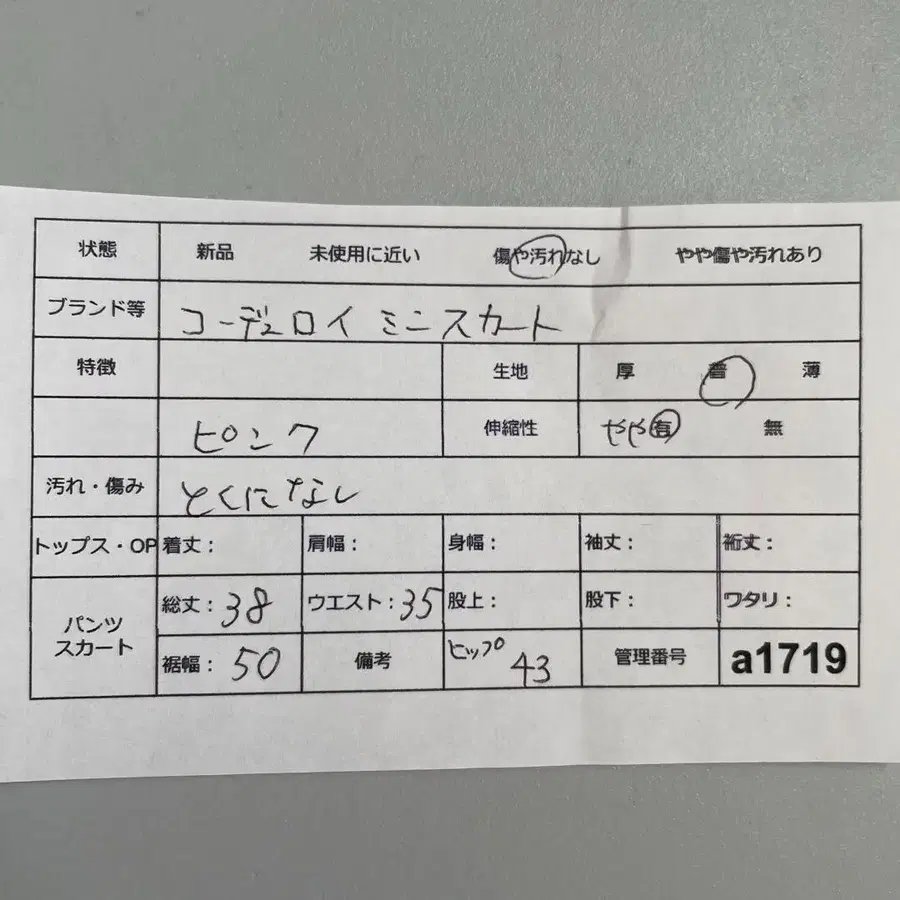 状態 新品 未使用に近い 傷や汚れなし やや傷や汚れあり
ブランド等 コーデュロイ ミニスカート
特徴 生地 厚 普 薄
ピンク 伸縮性 やや有 無
汚れ・傷み とくになし
トップス・OP 着丈： 肩幅： 身幅： 袖丈： 裄丈：
パンツ スカート 総丈：38 ウエスト：35 股上： 股下： ワタリ：
裾幅：50 備考 ヒップ 43 管理番号 a1719